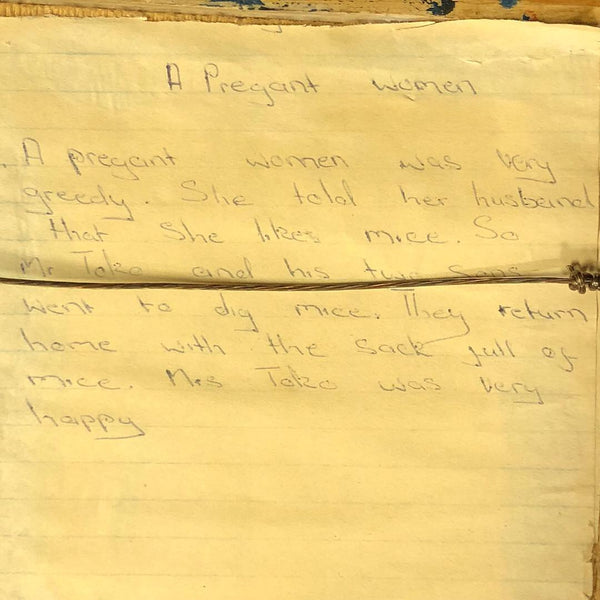 A Pregant women
A pregant women was very
greedy. She told her husband
that She likes mice. So
Mr Toko and his two sons
went to dig mice. They return
home with the sack full of
mice. Mrs Toko was very
happy